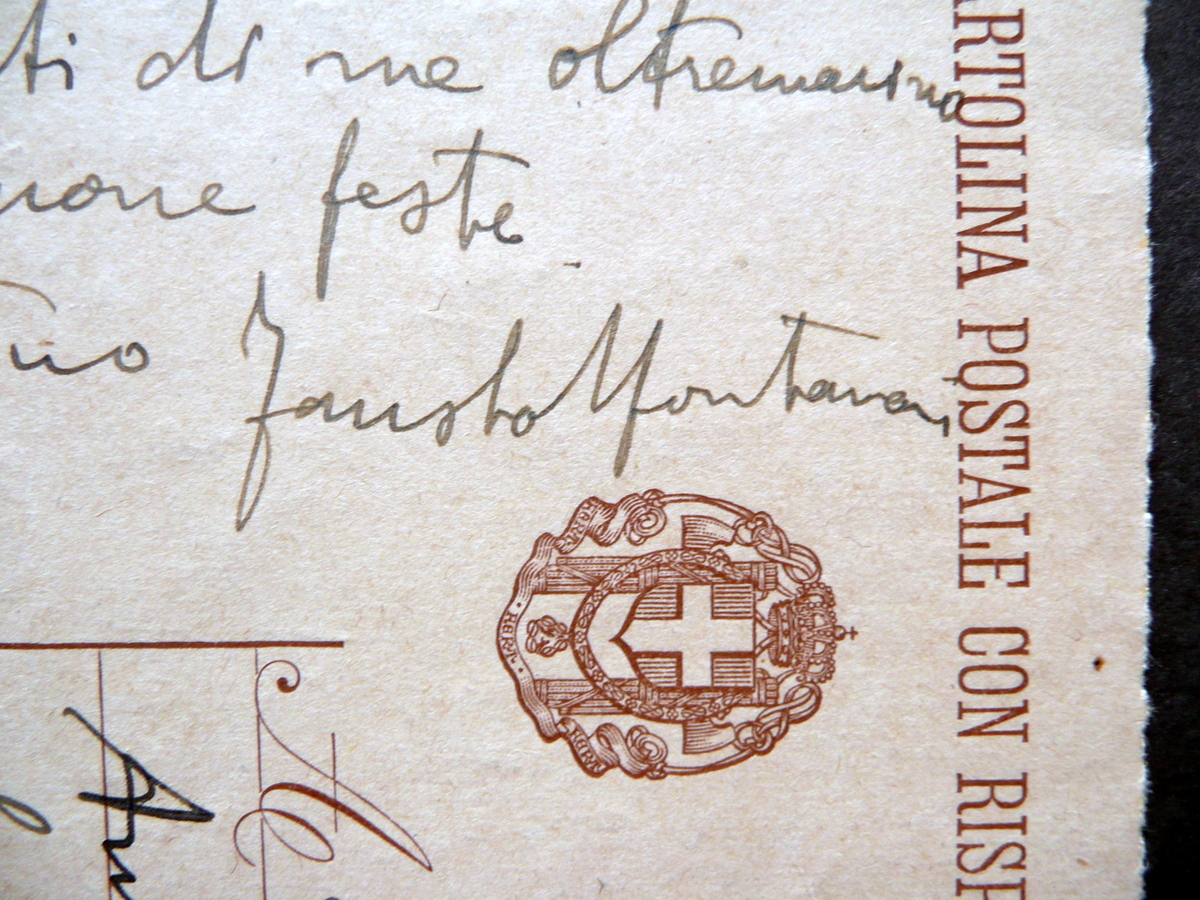 ti di me oltremarino
uone feste
Fausto Montanari
ARTOLINA POSTALE CON RISP
FERT
FERT
FERT
Al